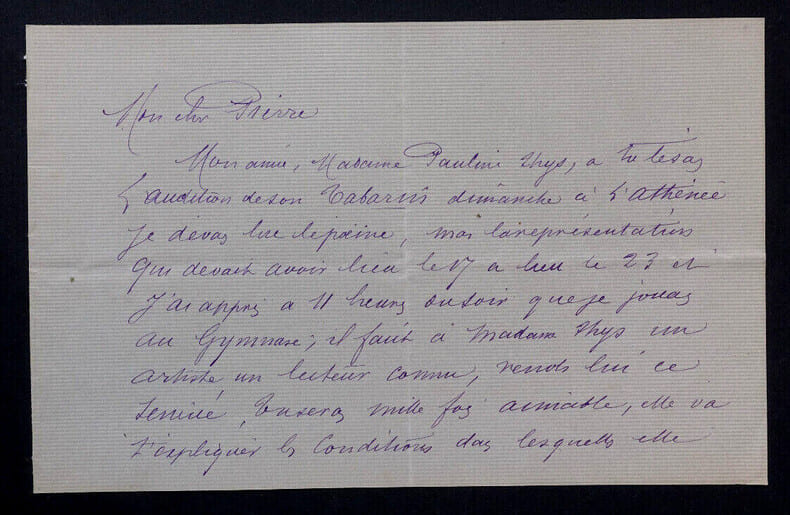 Mon cher Pierre
Mon amie, Madame Pauline Thys, a
L'audition de son Tabarin dimanche à L'athénée
Je devais lire le poème, mais la représentation
qui devait avoir lieu le 17 a lieu le 23 et
J'ai appris a 11 heures du soir que je jouais
au Gymnase, il faut à Madame Thys un
artiste un lecteur connu, rends lui ce
service, tu seras mille fois aimable, elle va
t'expliquer les Conditions dans lesquelles elle